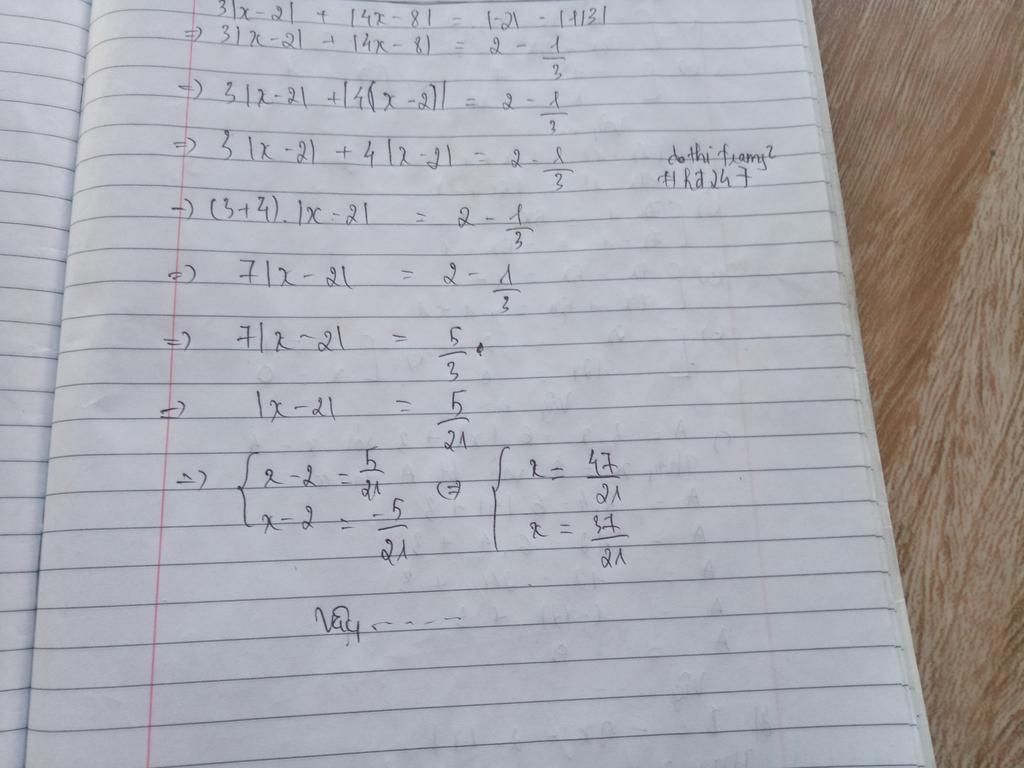 3|x-2| + |4x-8| = |-2| - |1/3|
=> 3|x-2| + |4x-8| = 2 - 1/3
=> 3|x-2| + |4(x-2)| = 2 - 1/3
=> 3|x-2| + 4|x-2| = 2 - 1/3
dothi trang2
HRd247
=> (3+4).|x-2| = 2 - 1/3
=> 7|x-2| = 2 - 1/3
=> 7|x-2| = 5/3
=> |x-2| = 5/21
=> { x-2 = 5/21 <=> [ x = 47/21
x-2 = -5/21 x = 37/21
Vậy ----